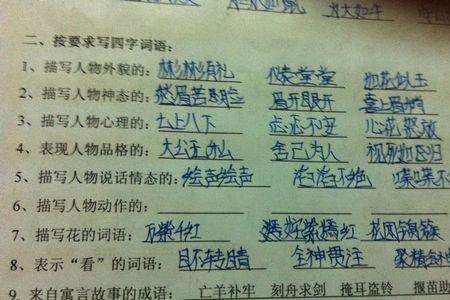 二、按要求写四字词语:
1、描写人物外貌的: 彬彬有礼 仪表堂堂 如花似玉
2、描写人物神态的: 愁眉苦脸 眉开眼 喜上眉梢
3、描写人物心理的: 七上八下 忐忑不安 心花怒放
4、表现人物品格的: 大公无私 舍己为人 视死如归
5、描写人物说话情态的: 绘声绘声 滔滔不绝 喋喋不
6、描写人物动作的:
7、描写花的词语: 万紫千红 姹紫嫣红 花团锦簇
8、表示“看”的词语: 目不转睛 全神贯注 聚精会神
9、来自寓言故事的成语: 亡羊补牢 刻舟求剑 掩耳盗铃 揠苗助